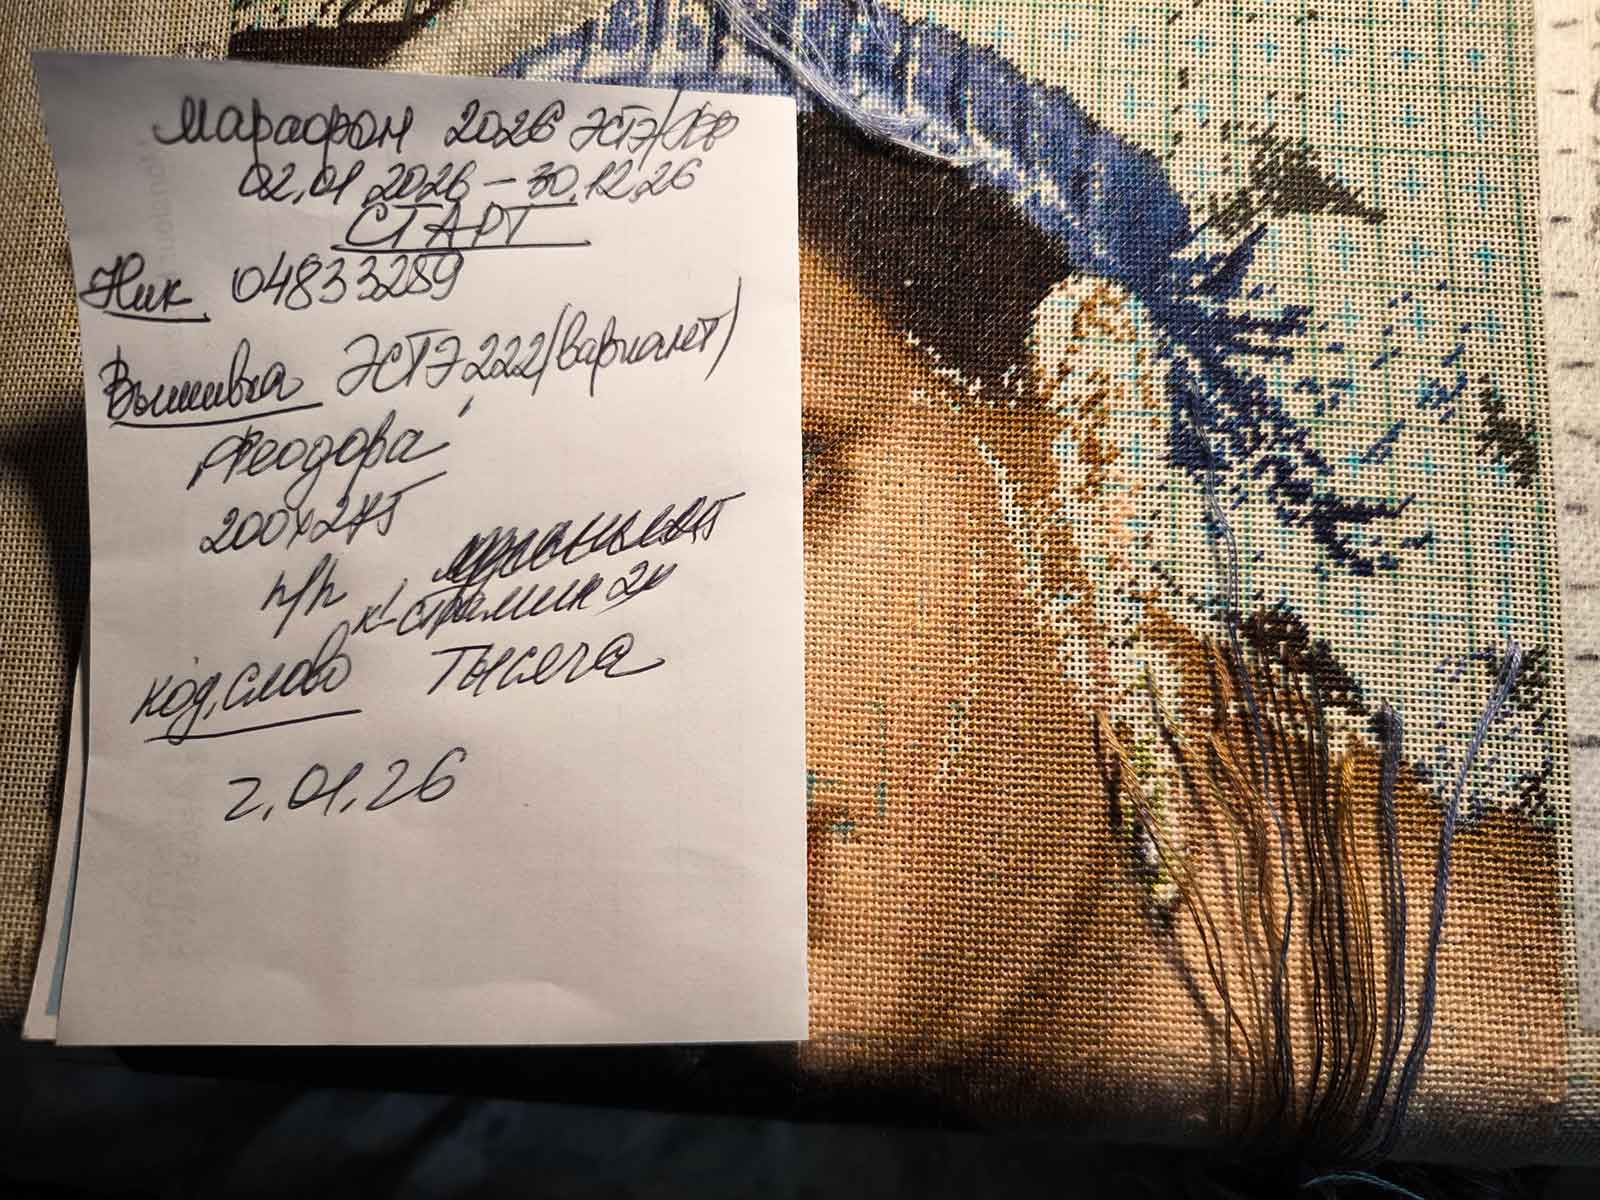 Марафон 2026 ЭСТЭ/
02.01.2026 – 30.12.26
СТАРТ
Ник 04833289
Вышивка ЭСТЭ 222 (вариант)
Феодора
200х275
п/п
к-страмин 2н
код. слово тысяча
2.01.26